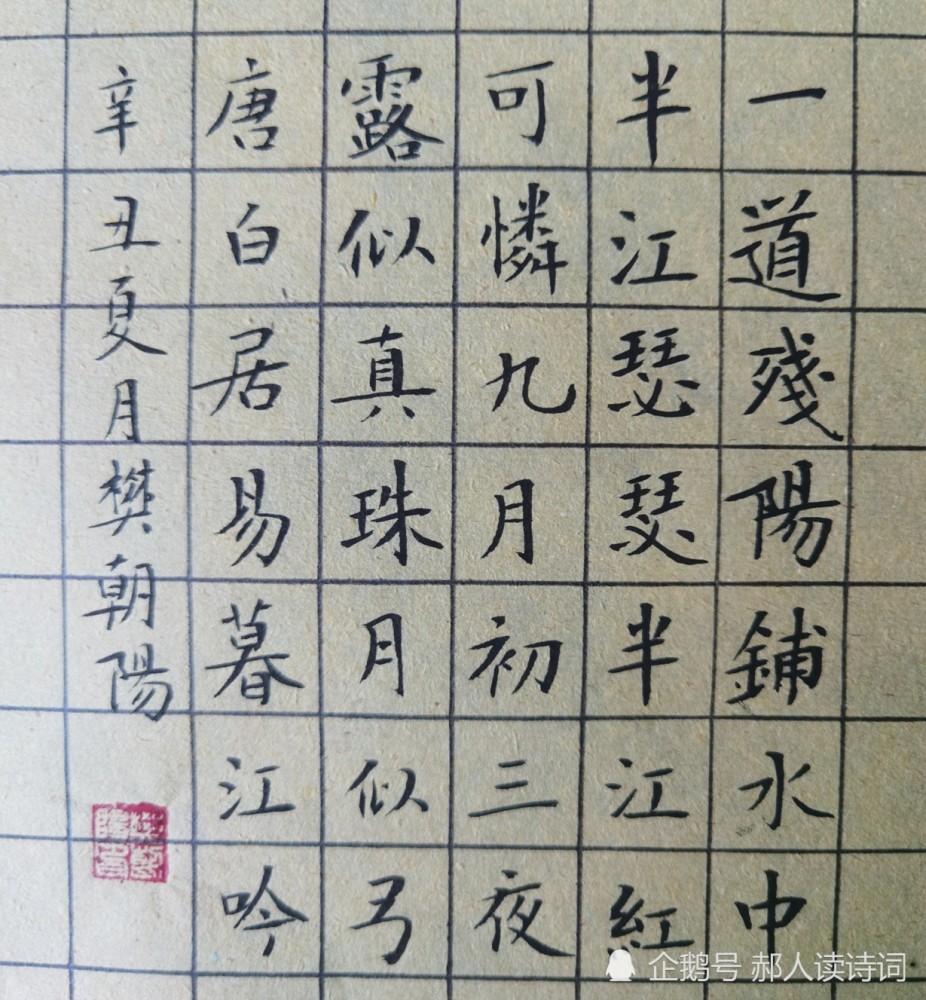 一道殘陽鋪水中
半江瑟瑟半江紅
可憐九月初三夜
露似真珠月似弓
唐白居易暮江吟
辛丑夏月樊朝陽
企鹅号 郝人读诗词